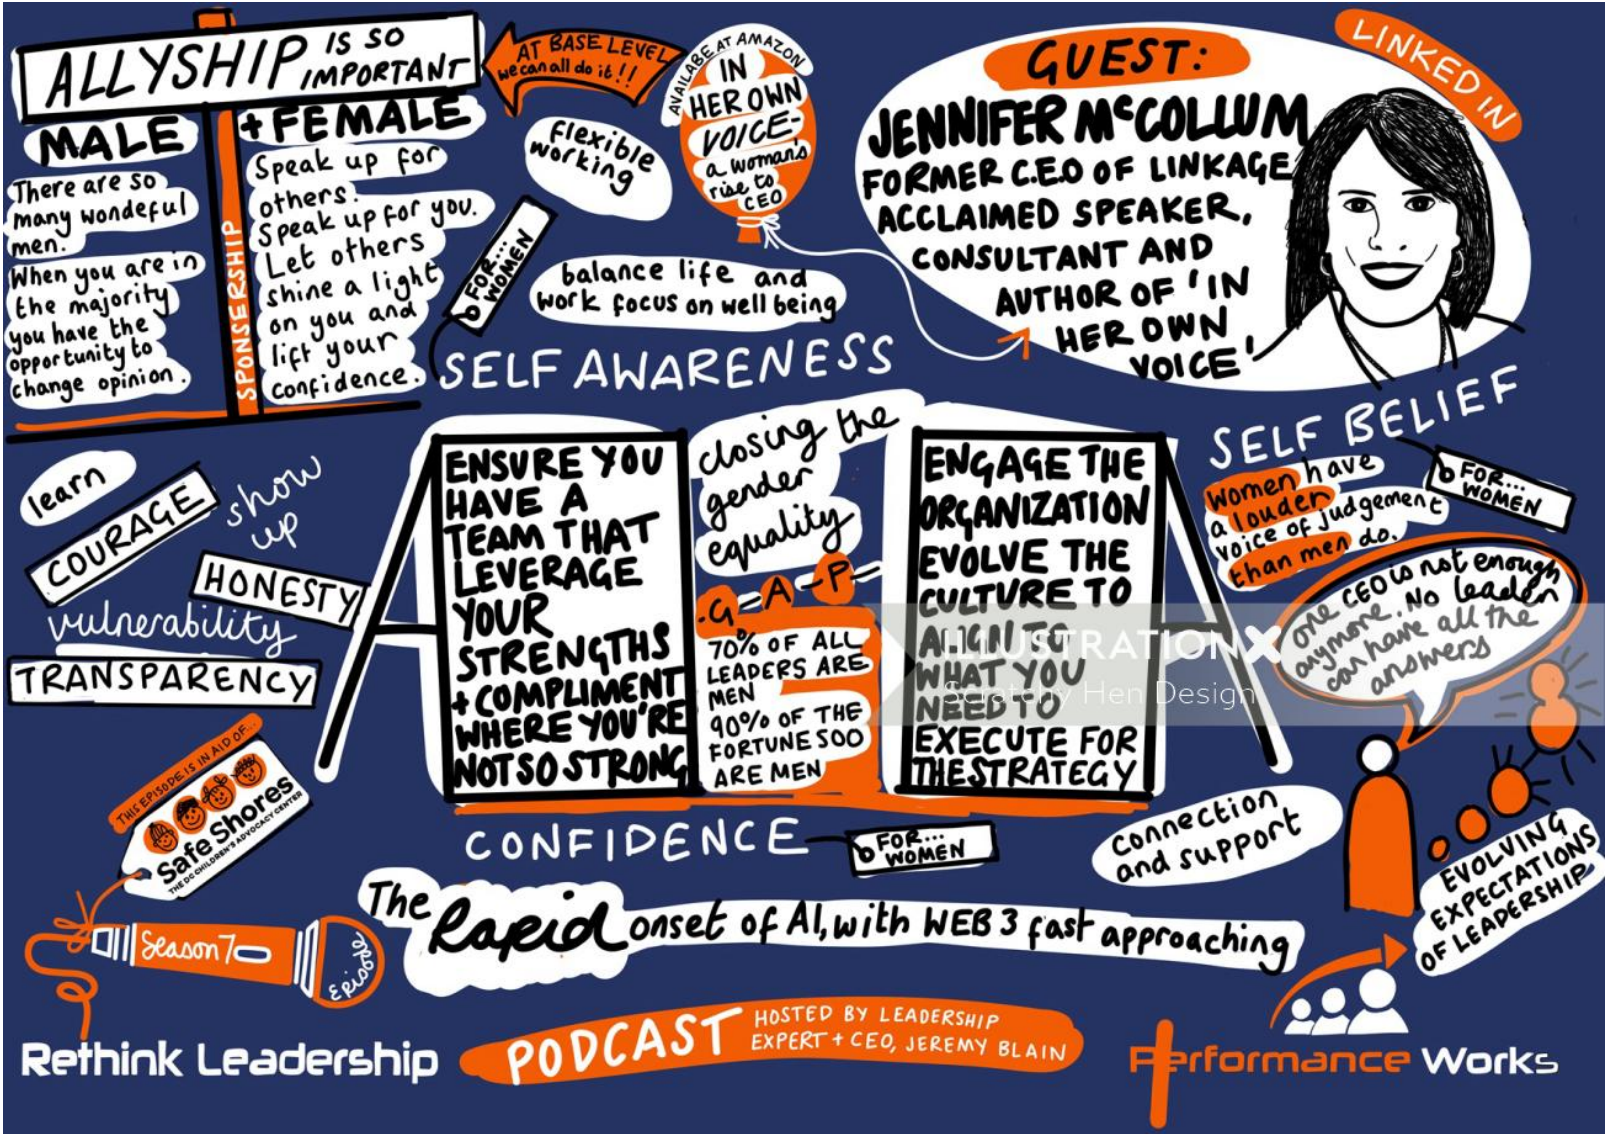 ALLYSHIP IS SO
IMPORTANT
MALE
+ FEMALE
There are so
many wondeful
men.
When you are in
the majority
you have the
opportunity to
change opinion.
SPONSERSHIP
Speak up for
others.
Speak up for you.
Let others
shine a light
on you and
lift your
confidence.
AT BASE LEVEL
we can all do it!!
AVAILABLE AT AMAZON
IN
HER OWN
VOICE-
a woman's
rise to
CEO
flexible
working
FOR...
WOMEN
balance life and
work focus on well being
SELF AWARENESS
GUEST:
LINKED IN
JENNIFER McCOLLUM
FORMER C.E.O OF LINKAGE
ACCLAIMED SPEAKER,
CONSULTANT AND
AUTHOR OF 'IN
HER OWN
VOICE'
SELF BELIEF
FOR...
WOMEN
Women have
a louder
voice of judgement
than men do.
one CEO is not enough
anymore. No leader
can have all the
answers
learn
COURAGE
show
up
HONESTY
vulnerability
TRANSPARENCY
ENSURE YOU
HAVE A
TEAM THAT
LEVERAGE
YOUR
STRENGTHS
+ COMPLIMENT
WHERE YOU'RE
NOT SO STRONG
closing the
gender
equality
-G-A-P-
70% OF ALL
LEADERS ARE
MEN
90% OF THE
FORTUNE 500
ARE MEN
ENGAGE THE
ORGANIZATION
EVOLVE THE
CULTURE TO
ALIGN TO
WHAT YOU
NEED TO
EXECUTE FOR
THE STRATEGY
ILLUSTRATIONX
Scratchy Hen Design
THIS EPISODE IS IN AID OF...
Safe Shores
THE DC CHILDREN'S ADVOCACY CENTER
CONFIDENCE
FOR...
WOMEN
connection
and support
EVOLVING
EXPECTATIONS
OF LEADERSHIP
The Rapid onset of AI, with WEB 3 fast approaching
Season 7
Episode
Rethink Leadership
PODCAST
HOSTED BY LEADERSHIP
EXPERT + CEO, JEREMY BLAIN
Performance Works